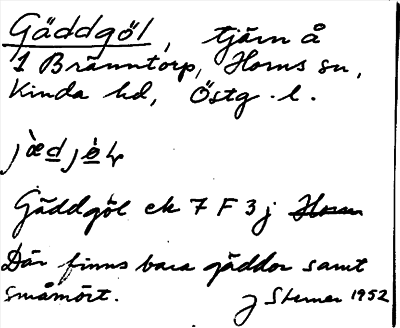 Gäddgöl, tjärn å
1 Bränntorp, Horns sn,
Kinda hd, Östg. l.
Gäddgöl ek 7 F 3 j Horn
Där finns bara gäddor samt
småmört. J Sterner 1952